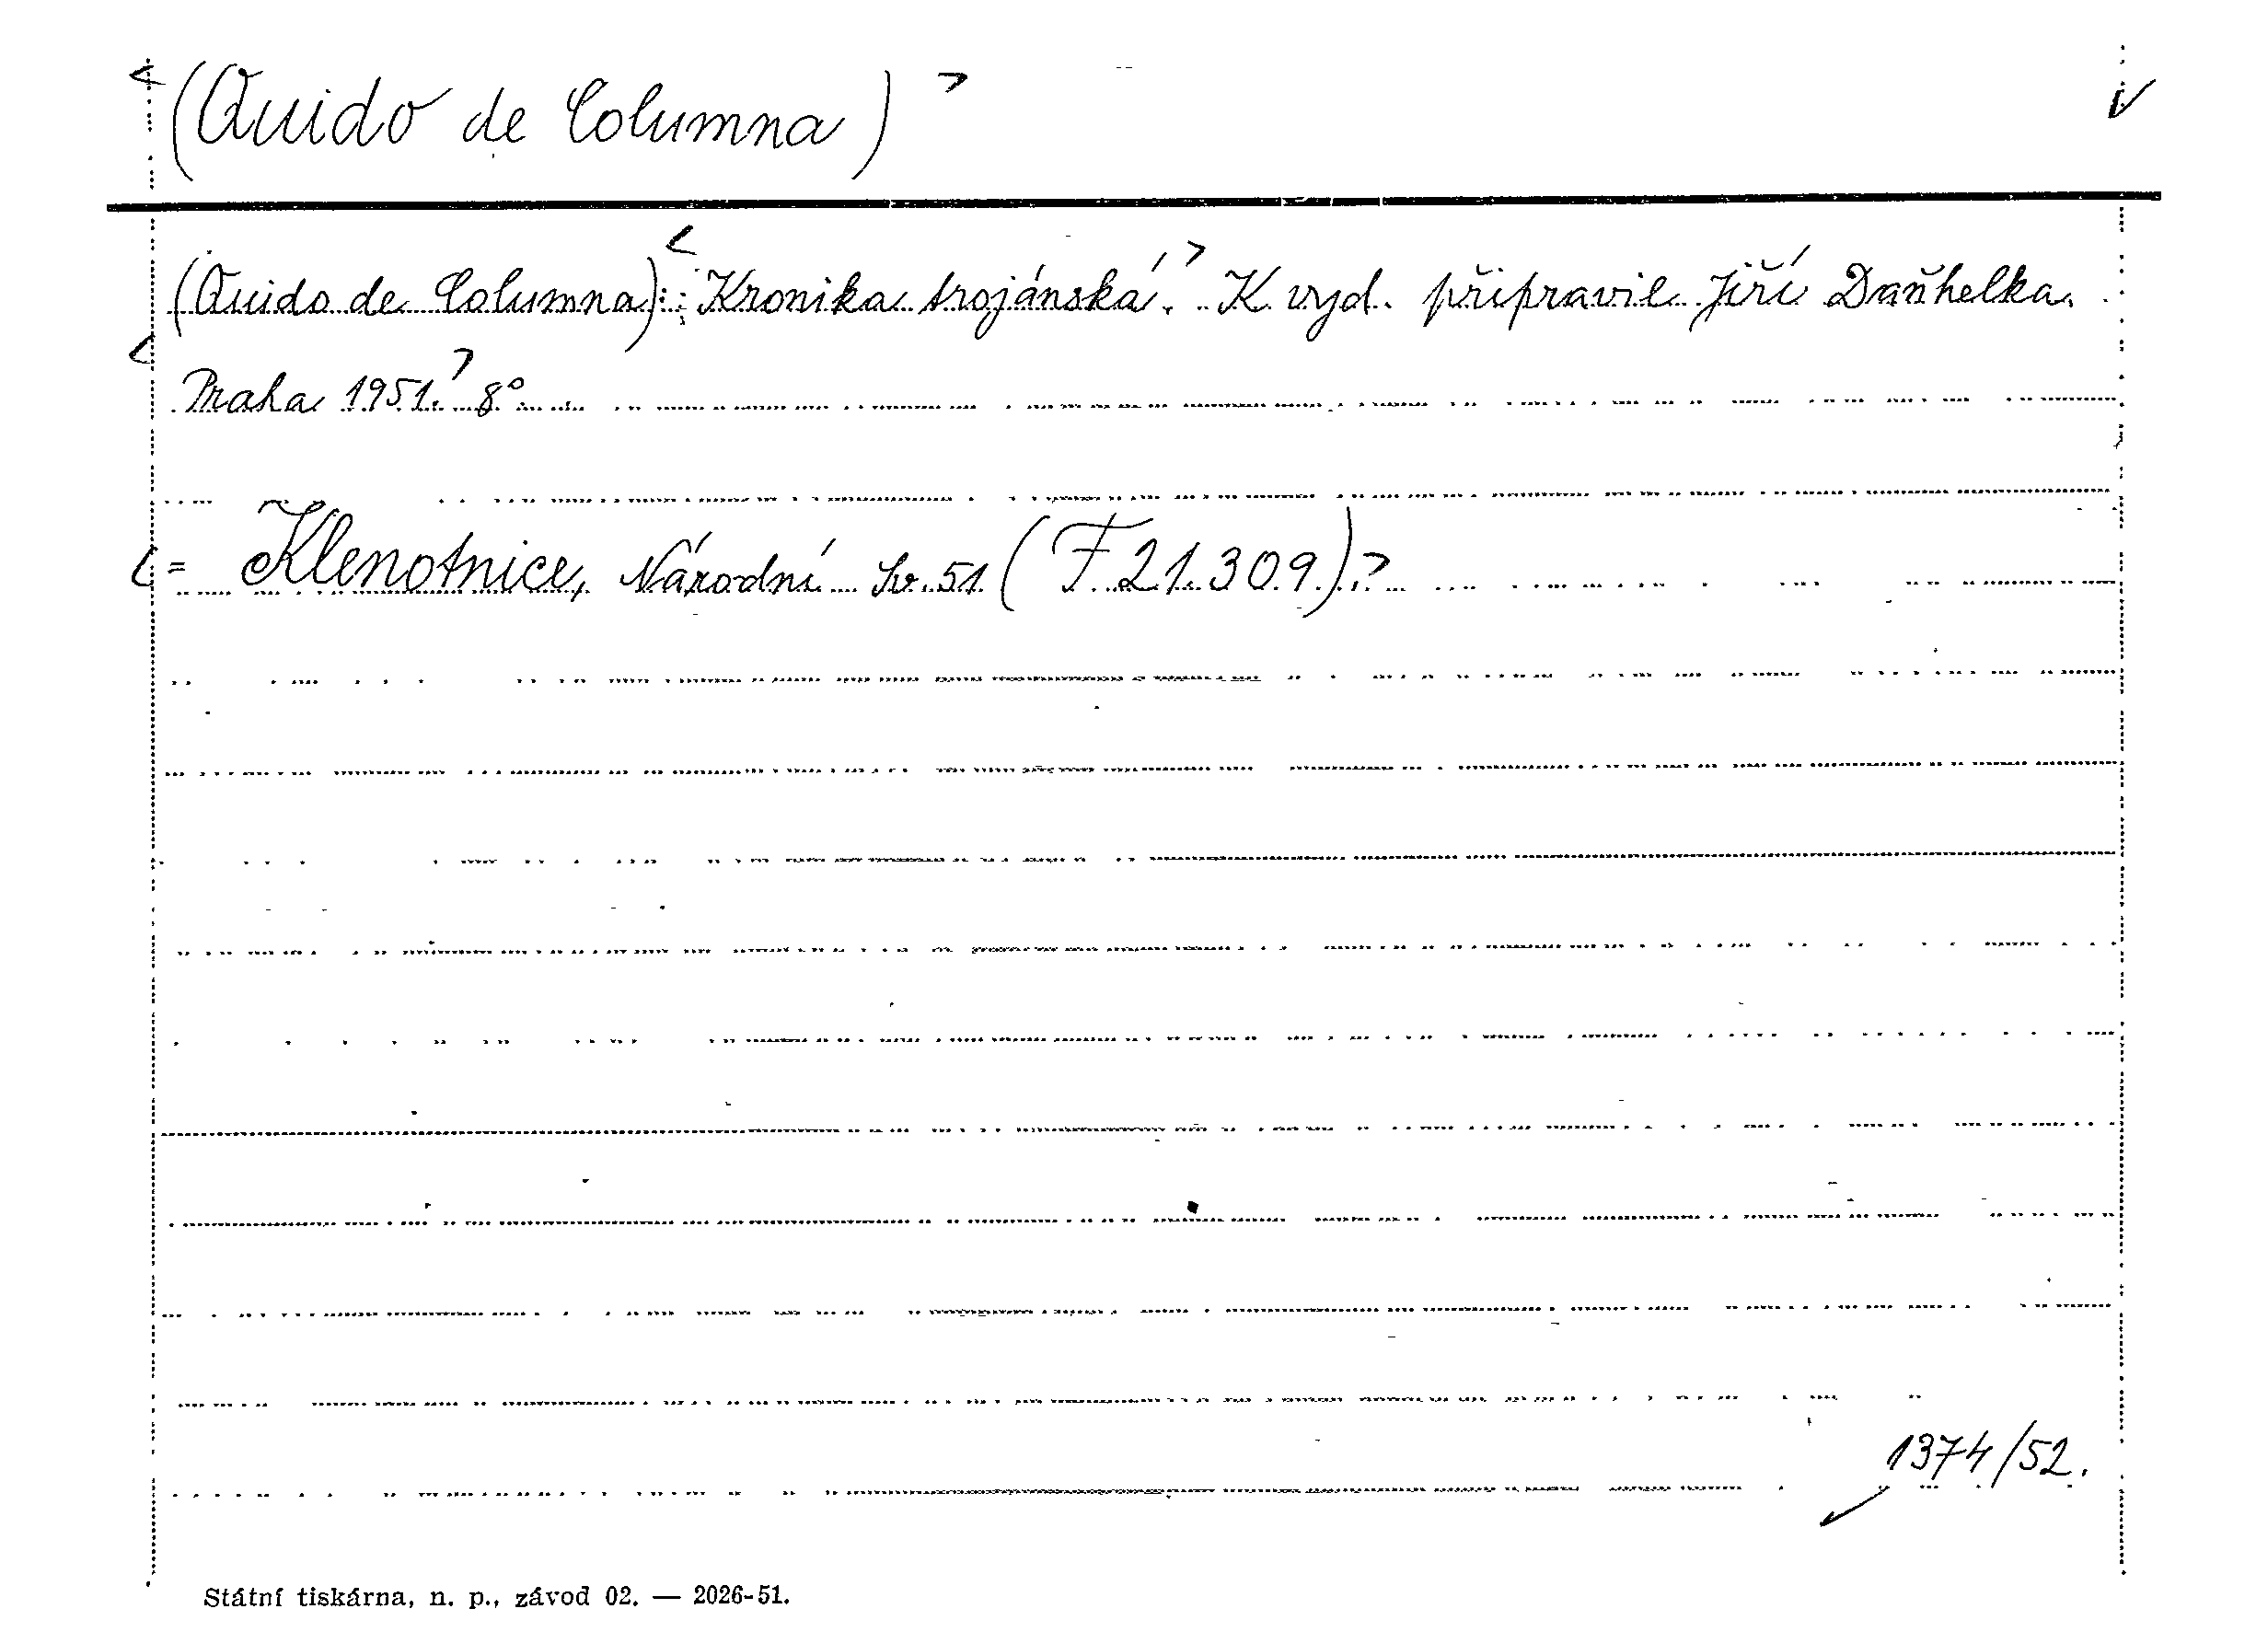 <(Quido de Columna)>
(Quido de Columna): <Kronika trojánská.> K vyd. připravil Jiří Daňhelka.
<Praha 1951.> 8°
<= Klenotnice, Národní Sv. 51 (F 21.309).>
1374/52.
Státní tiskárna, n. p., závod 02. — 2026-51.